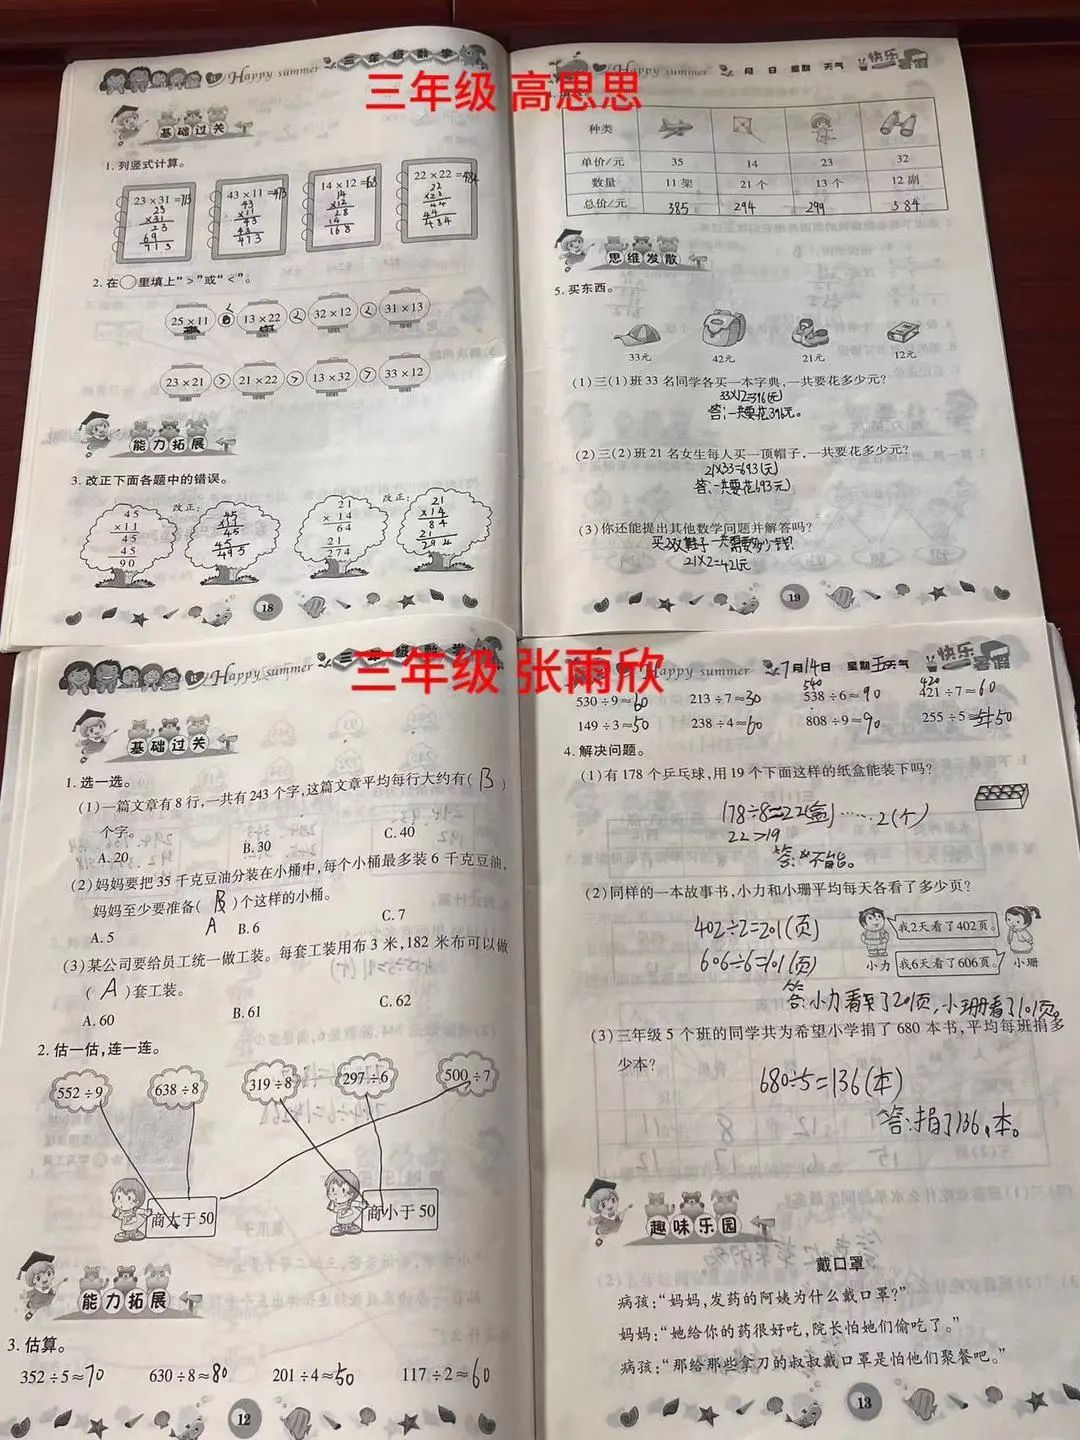 三年级数学
Happy summer
三年级 高思思
基础过关
1. 列竖式计算。
23×31=713
23
×31
23
69
713
43×11=473
43
×11
43
43
473
14×12=168
14
×12
28
14
168
22×22=484
22
×22
44
44
484
2. 在○里填上“>”或“<”。
25×11 < 13×22 < 32×12 < 31×13
23×21 > 21×22 > 13×32 > 33×12
能力拓展
3. 改正下面各题中的错误。
45
×11
45
45
90
改正:
45
×11
45
45
495
21
×14
64
21
274
改正:
21
×14
84
21
294
18
Happy summer
月 日 星期 天气
快乐暑假
种类
单价/元 35 14 23 32
数量 11架 21个 13个 12副
总价/元 385 294 299 384
思维发散
5. 买东西。
33元 42元 21元 12元
(1)三(1)班33名同学各买一本字典,一共要花多少元?
33×12=396(元)
答:一共要花396元。
(2)三(2)班21名女生每人买一顶帽子,一共要花多少元?
21×33=693(元)
答:一共要花693元)
(3)你还能提出其他数学问题并解答吗?
买2双鞋子一共需要多少钱?
21×2=42元
19
三年级数学
Happy summer
三年级 张雨欣
基础过关
1. 选一选。
(1)一篇文章有8行,一共有243个字,这篇文章平均每行大约有( B )
个字。
A. 20 B. 30 C. 40
(2)妈妈要把35千克豆油分装在小桶中,每个小桶最多装6千克豆油,
妈妈至少要准备( B )个这样的小桶。
A. 5 A B. 6 C. 7
(3)某公司要给员工统一做工装。每套工装用布3米,182米布可以做
( A )套工装。
A. 60 B. 61 C. 62
2. 估一估,连一连。
552÷9 638÷8 319÷8 297÷6 500÷7
商大于50 商小于50
能力拓展
3. 估算。
352÷5≈70 630÷8≈80 201÷4≈50 117÷2≈60
12
Happy summer
7月14日 星期五 天气
快乐暑假
540 420
530÷9≈60 213÷7≈30 538÷6≈90 421÷7≈60
149÷3≈50 238÷4≈60 808÷9≈90 255÷5≈50
4. 解决问题。
(1)有178个乒乓球,用19个下面这样的纸盒能装下吗?
178÷8=22(盒)……2(个)
22>19
答:不能。
(2)同样的一本故事书,小力和小珊平均每天各看了多少页?
402÷2=201(页)
606÷6=101(页)
我2天看了402页。
我6天看了606页。
小力 小珊
答:小力看了201页,小珊看了101页。
(3)三年级5个班的同学共为希望小学捐了680本书,平均每班捐多
少本?
680÷5=136(本)
答:捐了136本。
趣味乐园
戴口罩
病孩:“妈妈,发药的阿姨为什么戴口罩?”
妈妈:“她给你的药很好吃,院长怕她们偷吃了。”
病孩:“那给那些拿刀的叔叔戴口罩是怕他们聚餐吧。”
13